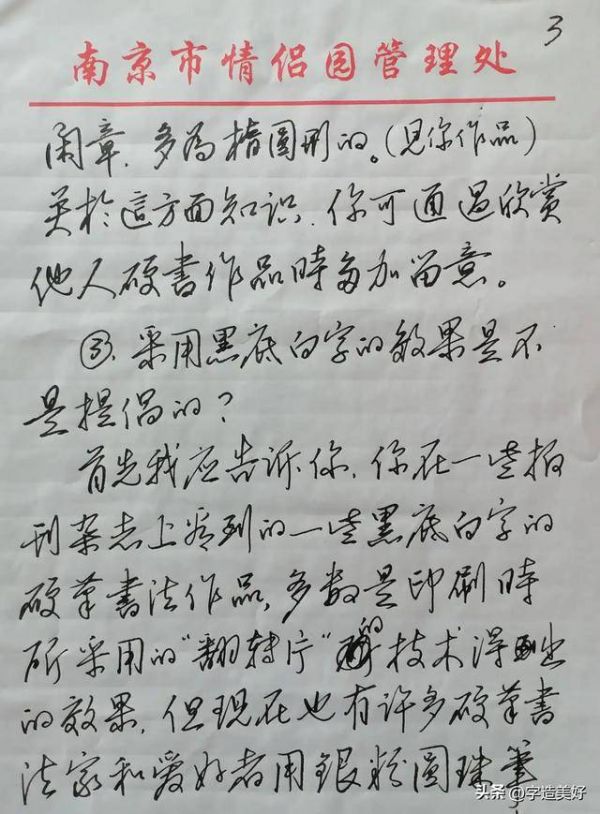 3
南京市情侣园管理处
闲章，多为橢圆形的。（见你作品）
关於這方面知识，你可通过欣赏
他人硬書作品時多加留意。
③、采用黑底白字的效果是不
是提倡的？
首先我应告诉你，你在一些报
刊杂志上看到的一些黑底白字的
硬筆書法作品，多数是印刷時
所采用的“翻转片”的技术得出
的效果，但现在也有许多硬筆書
法家和爱好者用銀粉圆珠筆
头条 @字造美好